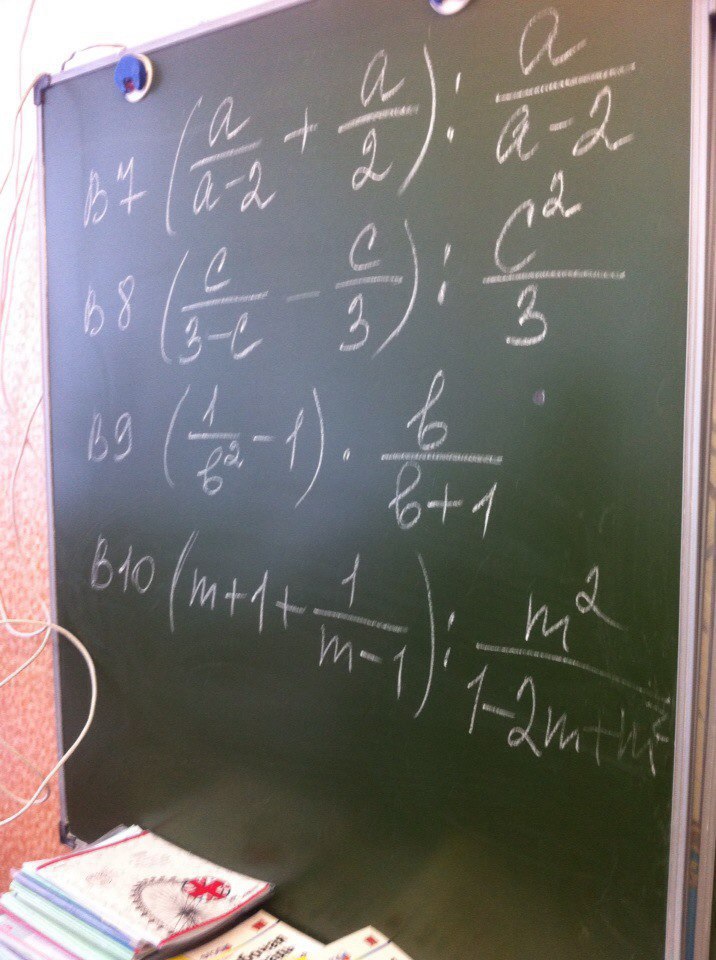 В7 (a/(a-2) + a/2) : a/(a-2)
В8 (c/(3-c) - c/3) : c²/3
В9 (1/b² - 1) · b/(b+1)
В10 (m+1+1/(m-1)) : m²/(1-2m+m²)